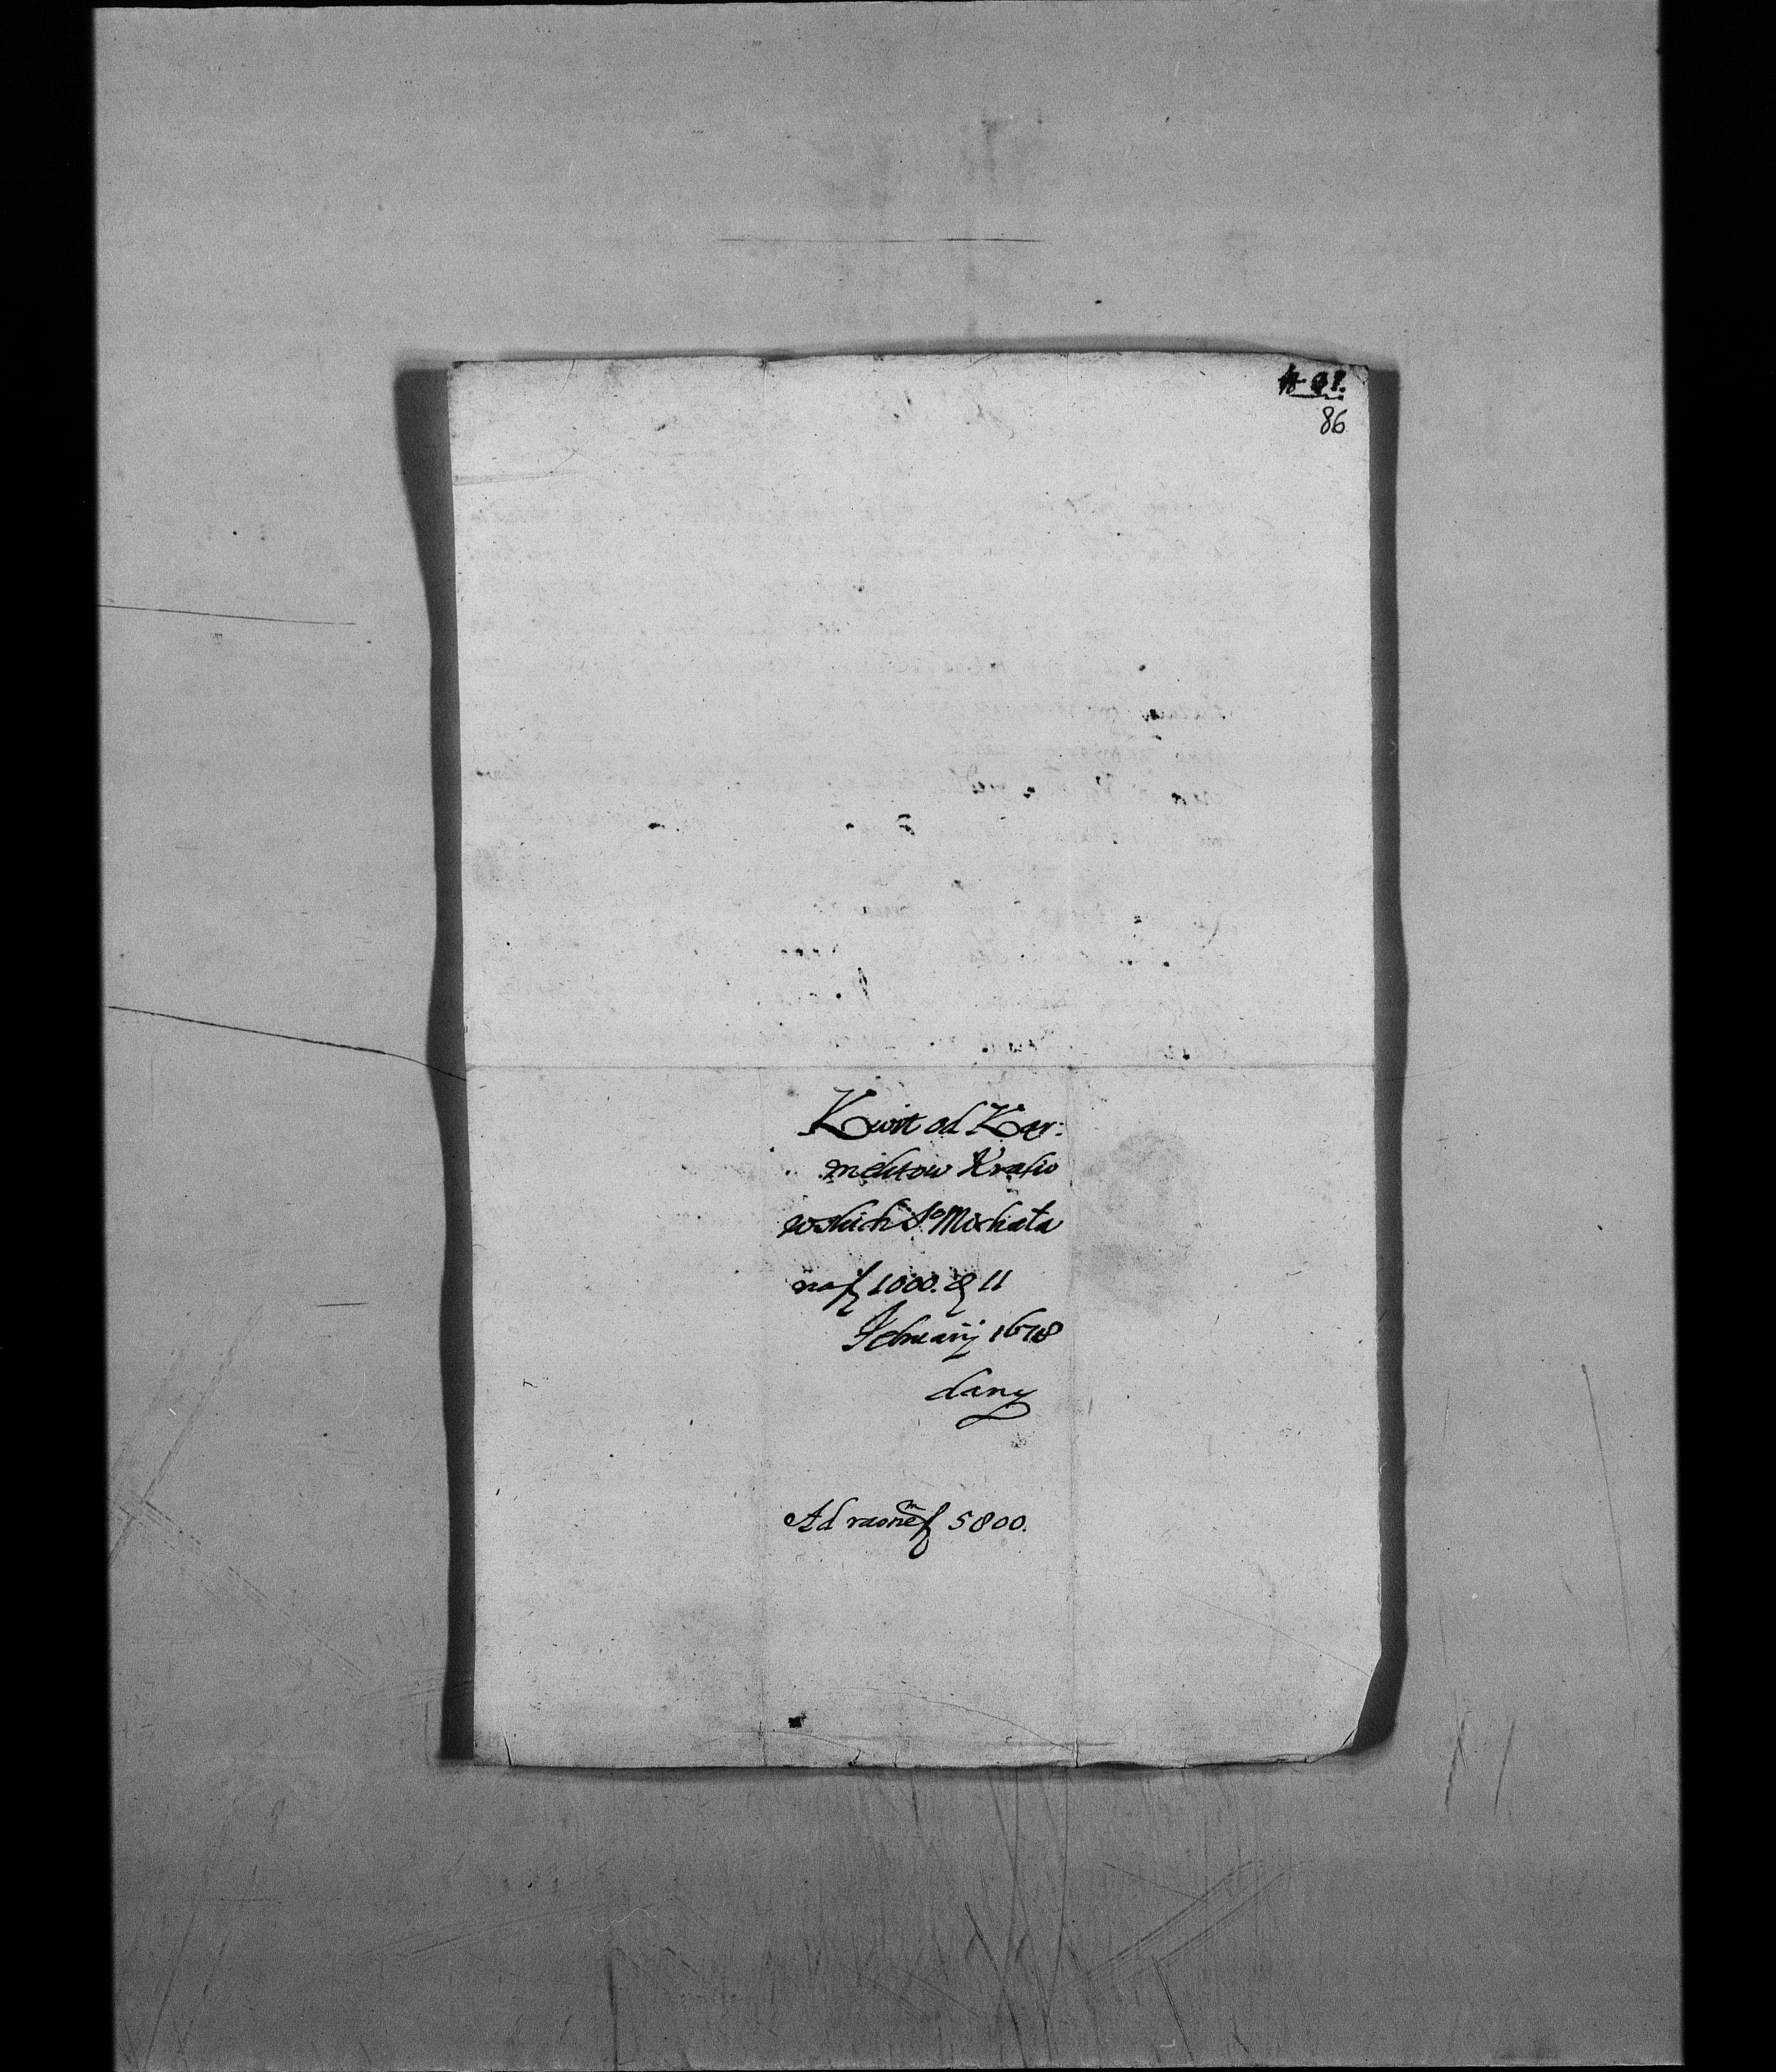 86
Kwit od Kar:
melitow Krako
wskich S° Michała
na f 1000. d 11
Februarij 1678
dany
Ad raonē f 5800.